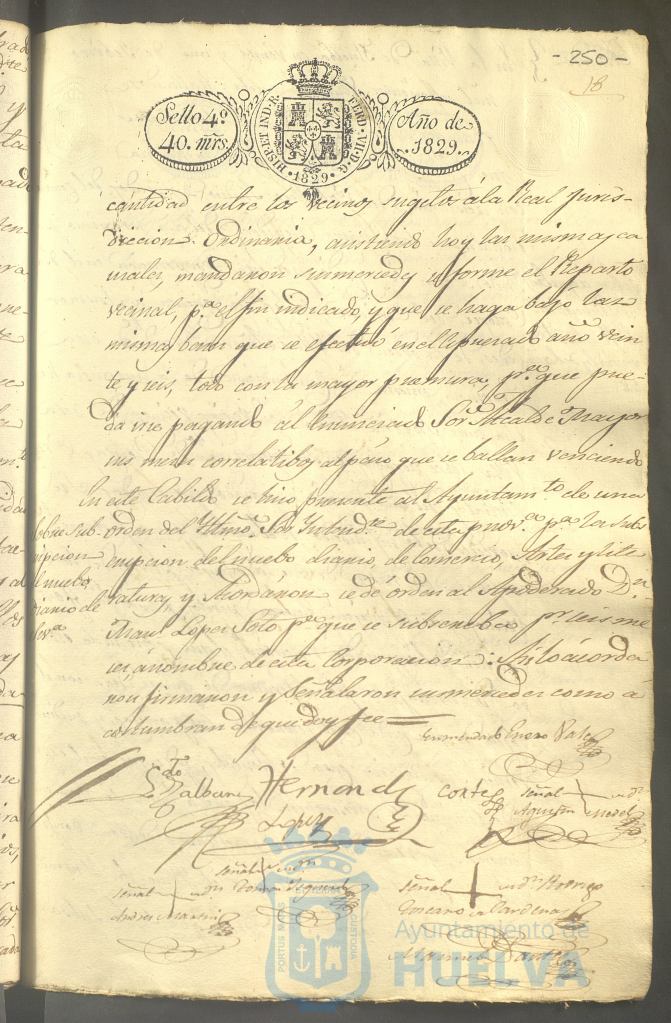 - 250 -
18
Sello 4º
40. mrs.
HISP. ET IND. R.
FERD. VII. D. G.
1829
Año de
1829.
cantidad entre los vecinos sugetos á la Real Juris-
diccion Ordinaria, asistiendo hoy las mismas ca
usales, mandaron sus mercedes se forme el Reparto
vecinal, pª. el fin indicado, y que se haga bajo las
mismas bases que se efectuó en el apurado año vein
te y seis, todo con la mayor premura, pª. que pue-
da irse pagando al enunciado Sor. Alcalde Mayor
sus mesas correlatibos al paso que se ballan venciendo
En este Cabildo se hizo presente al Ayuntamto. de una
orden del Yltmo. Sor. Intendte. de esta provª. pª. la subs
cripcion del nuebo diario, de Comercio, Artes y lite
ratura, y Mandaron se dé órden al Apoderado Dn.
Manl. Lopez Soto pª. que se subscriba pr. seis me
ses, á nombre de esta Corporacion: Asi lo acorda
ron firmaron y Señalaron sus mercedes como á
costumbran de que doy fee =
Sobre sub-
cripcion
al nuebo
Diario de
Enmendado Enero Vale
Hernandz
Cortes
Señal
de
Agustin Medel
Lopez
Señal
de
Señal
de
Andres Martin
Señal
de
Manuel
PORTUS MARIS
CUSTODIA
Ayuntamiento de
HUELVA